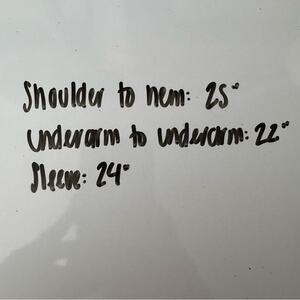 Shoulder to hem: 25"
underarm to underarm: 22"
Sleeve: 24"